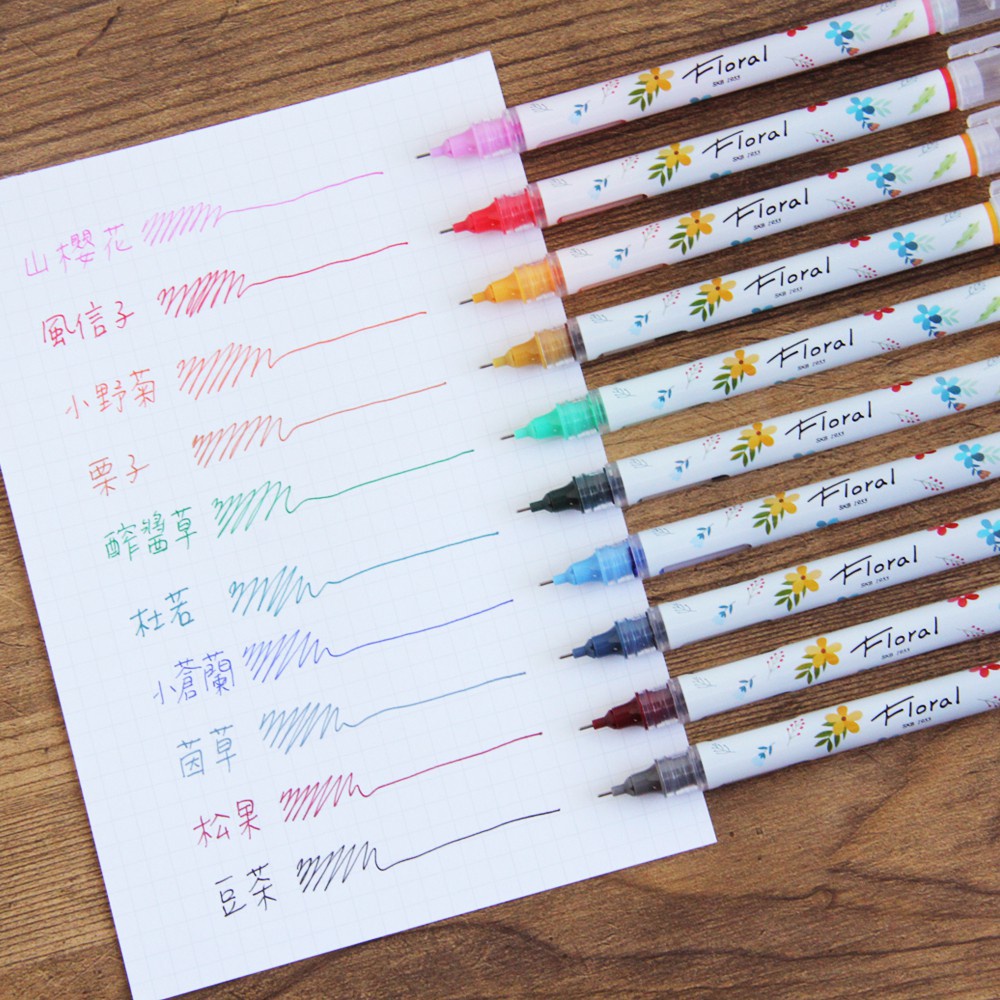 山櫻花
風信子
小野菊
栗子
酢醬草
杜若
小蒼蘭
茵草
松果
豆茶
Floral
SKB 2033
Floral
SKB 2033
Floral
SKB 2033
Floral
SKB 2033
Floral
SKB 2033
Floral
SKB 2033
Floral
SKB 2033
Floral
SKB 2033
Floral
SKB 2033
Floral
SKB 2033